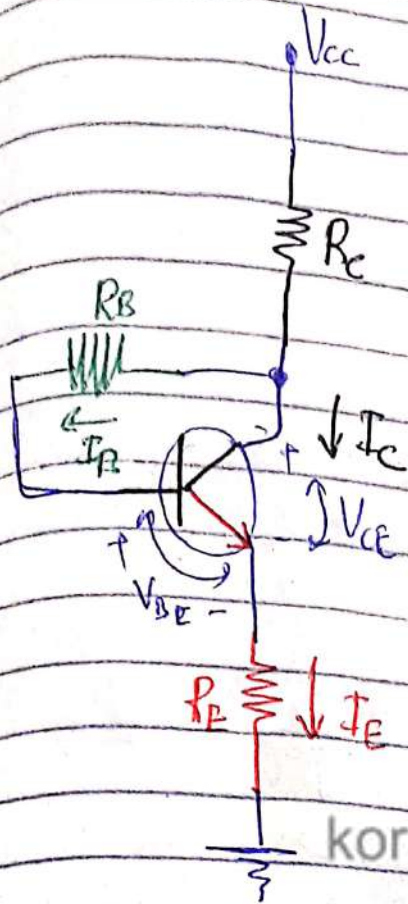 Vcc
Rc
RB
IB
Ic
+
VCE
-
+
VBE -
RE
IE
kor